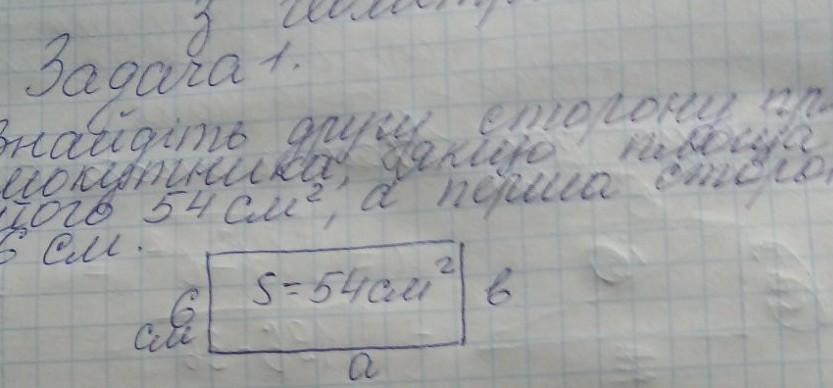 з геометр
Задача 1.
Знайдіть другу сторону пр
мокутника, якщо площа
його 54 см², а перша сторо
6 см.
S=54см²
в
6
см
a